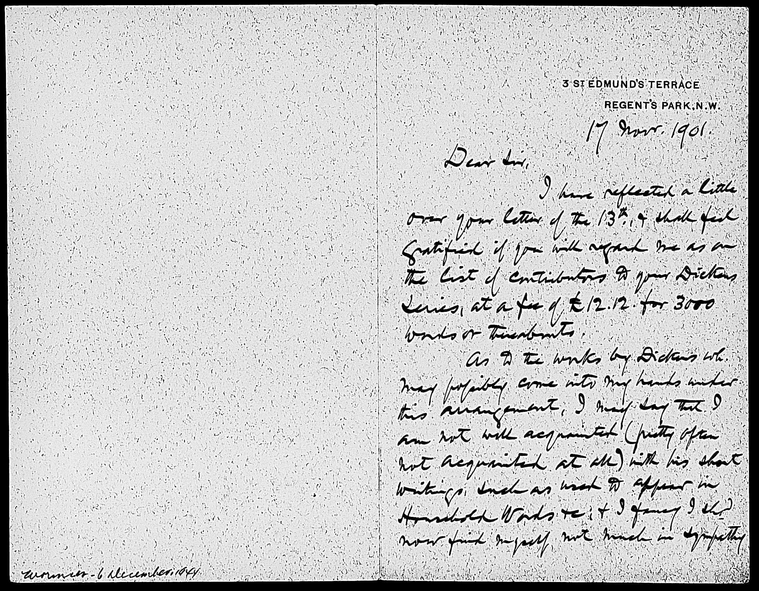 3 ST EDMUND'S TERRACE
REGENT'S PARK, N.W.
17 Novr. 1901.
Dear Sir,
I have reflected a little
over your letter of the 13th, & shall feel
gratified if you will regard me as on
the list of contributors to your Dickens
Series, at a fee of £12.12. for 3000
words or thereabouts.
As to the works by Dickens wh.
may possibly come into my hands under
this arrangement, I may say that I
am not well acquainted (pretty often
not acquainted at all) with his short
writings, such as used to appear in
Household Words &c; & I fancy I shd.
now find myself not much in sympathy
6 December, 1944